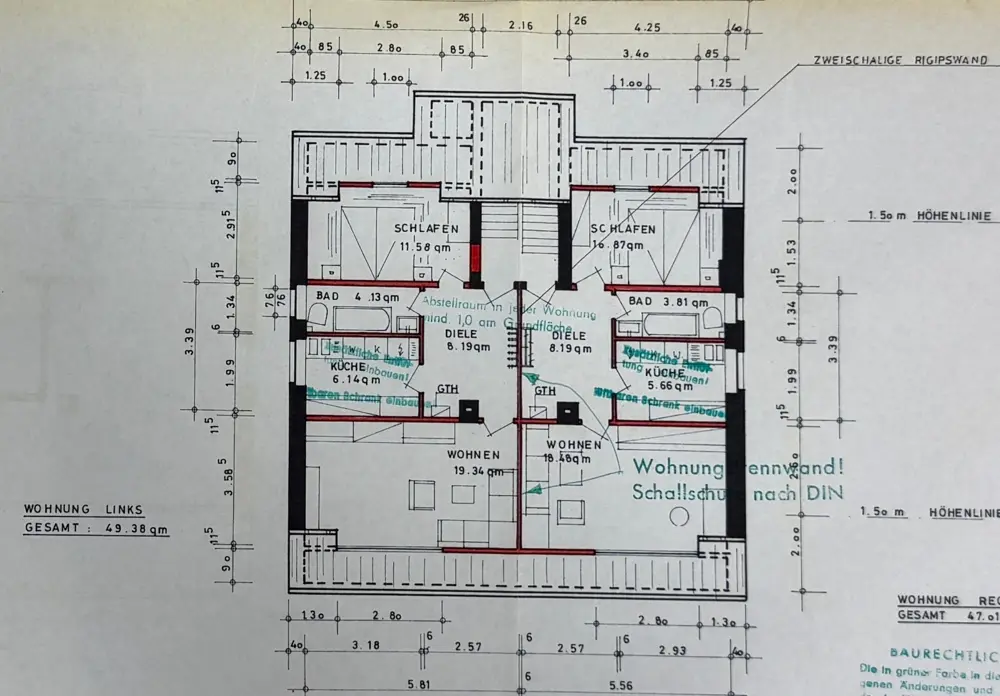 40 4.50 26 2.16 26 4.25 40
40 85 2.80 85 3.40 85
1.25 1.00 1.00 1.25
ZWEISCHALIGE RIGIPSWAND
90
11⁵
2.91⁵
11⁵
1.34
6
1.99
11⁵
3.58⁵
11⁵
90
3.39
76
76
2.00
1.50 m HÖHENLINIE
1.53
11⁵
1.34
6
1.99
11⁵
3.39
2.00
1.50 m HÖHENLINIE
SCHLAFEN
11.58 qm
SCHLAFEN
10.87 qm
BAD 4.13 qm
BAD 3.81 qm
Abstellraum in jeder Wohnung
mind. 1,0 qm Grundfläche
DIELE
8.19 qm
DIELE
8.19 qm
KÜCHE
6.14 qm
KÜCHE
5.66 qm
zusätzliche Entlüf-
tung einbauen!
lüftbaren Schrank einbauen
zusätzliche Entlüf-
tung einbauen!
lüftbaren Schrank einbauen
GTH
GTH
WOHNEN
19.34 qm
WOHNEN
18.48 qm
Wohnungstrennwand!
Schallschutz nach DIN
WOHNUNG LINKS
GESAMT : 49.38 qm
WOHNUNG REC
GESAMT 47.01
BAURECHTLIC
Die in grüner Farbe in die
genen Änderungen und
1.30 2.80 2.80 1.30
40 3.18 6 2.57 6 2.57 6 2.93 40
5.81 6 5.56